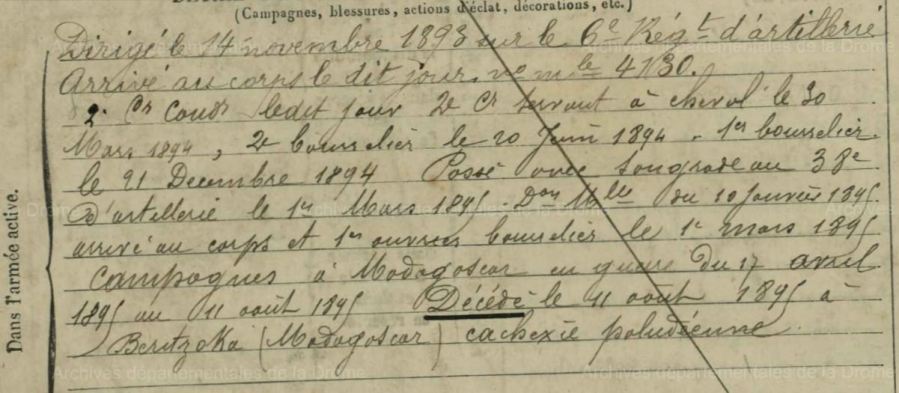 (Campagnes, blessures, actions d'éclat, décorations, etc.)
Dirigé le 14 novembre 1893 sur le 6e Régt d'artillerie
Arrivé au corps le dit jour. no mle 4130.
2e Cr Condr ledit jour 2e Cr servant à cheval le 30
Mars 1894, 2e bourrelier le 20 Juin 1894 - 1er bourrelier
le 21 Decembre 1894 Passé avec son grade au 38e
d'artillerie le 1er Mars 1895. Don Mlle du 10 Janvier 1895.
arrivé au corps et 1er ouvrier bourrelier le 1e mars 1895
Campagnes à Madagascar en guerre du 17 avril
1895 au 11 août 1895 Décédé le 11 aout 1895 à
Beritzoka (Madagascar) cachexie paludéenne.
Dans l'armée active.
Archives départementales de la Drôme